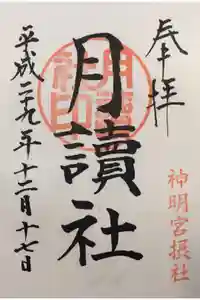 奉拝
神明宮摂社
月讀社
平成二十九年十二月十七日